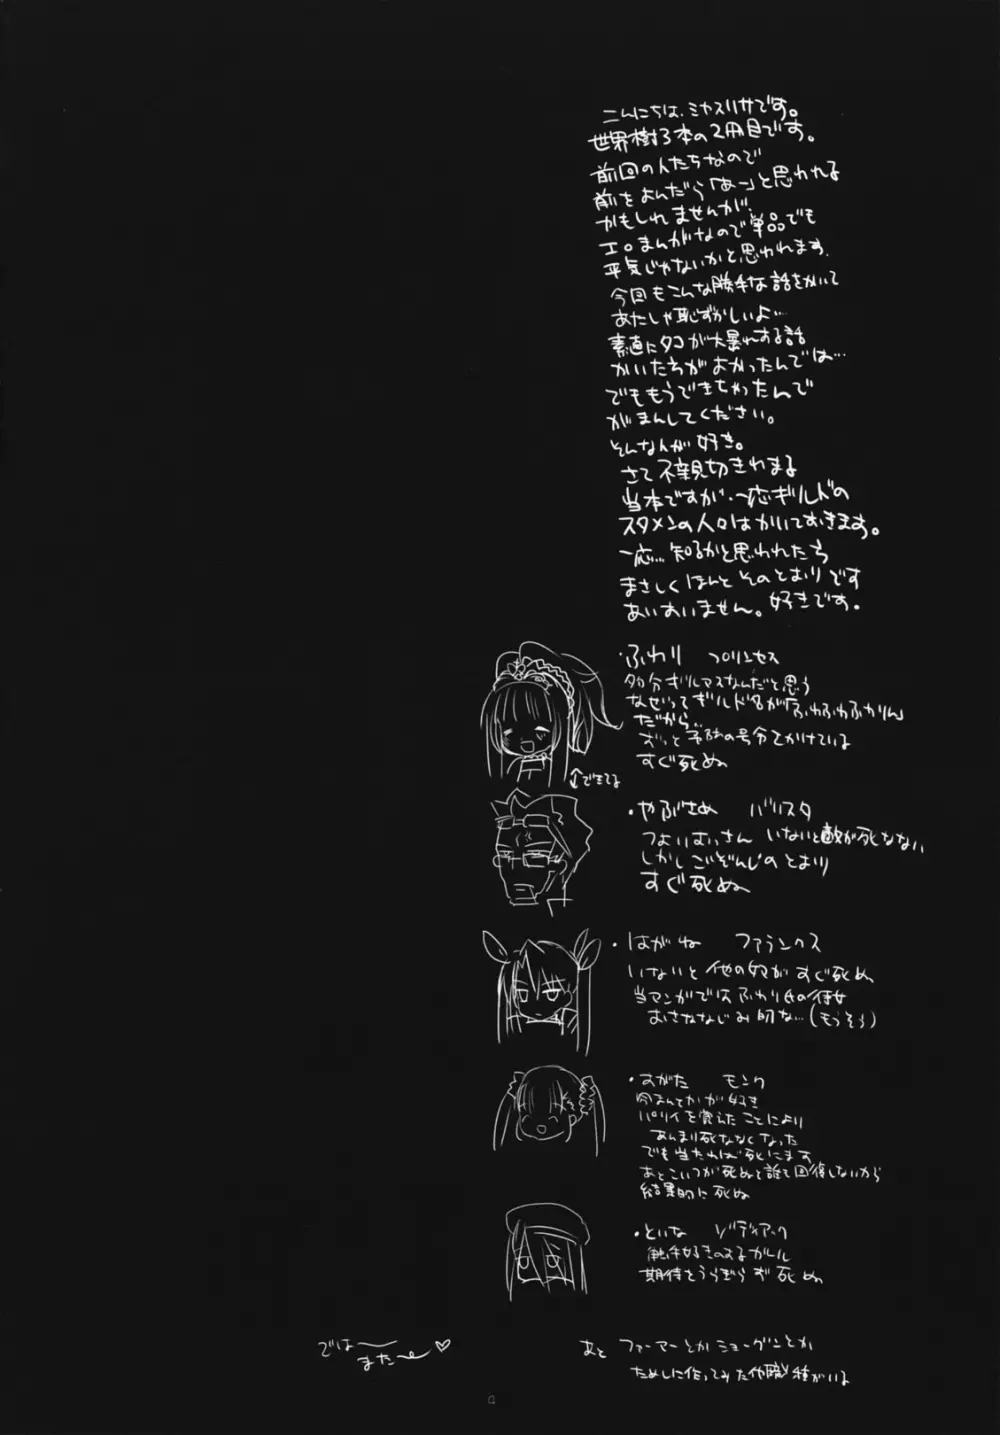 こんにちは、ミヤスリサです。
世界樹3本の2冊目です。
前回の人たちなので
前をよんだら「あー」と思われる
かもしれませんが、
エロまんがなので単品でも
平気じゃないかと思われます。
今回もこんな勝手な話をかいて
あたしゃ恥ずかしいよ…
素直にタコが大暴れする話
かいたらがよかったんでは…
でももうできちゃったんで
がまんしてください。
そんな人が好き。
さて不親切きわまる
当本ですが、一応ギルドの
スタメンの人々はかいておきます。
一応…知るかと思われたら
まさしくほんとそのとおりです
あいすいません。好きです。
・ふわり プリンセス
多分ギルマスなんだと思う
なぜってギルド名が「ふわふわふかりん」
だから…
ずっと予防の号令をかけている
すぐ死ぬ
↓できてる
・やぶさめ バリスタ
つよいむいさん いないと敵が死なない
しかしごぞんじのとおり
すぐ死ぬ
・はがね ファランクス
いないと他の奴がすぐ死ぬ
当マンガではふわり氏の彼女
おさななじみ的な…(もうそう)
・すがた モンク
パリイを覚えたことにより
あんまり死ななくなった
でも当たれば死にます
あとこいつが死ぬと誰も回復しないから
結果的に死ぬ
・といな ゾディアック
触手好きのメガール
期待をうらぎらず死ぬ
では〜
また〜♡
あと ファーマーとかショーグンとか
ためしに作ってみた他職種がいる